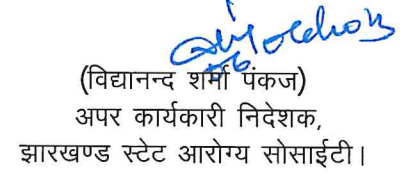 (विद्यानन्द शर्मा पंकज)
अपर कार्यकारी निदेशक,
झारखण्ड स्टेट आरोग्य सोसाईटी।